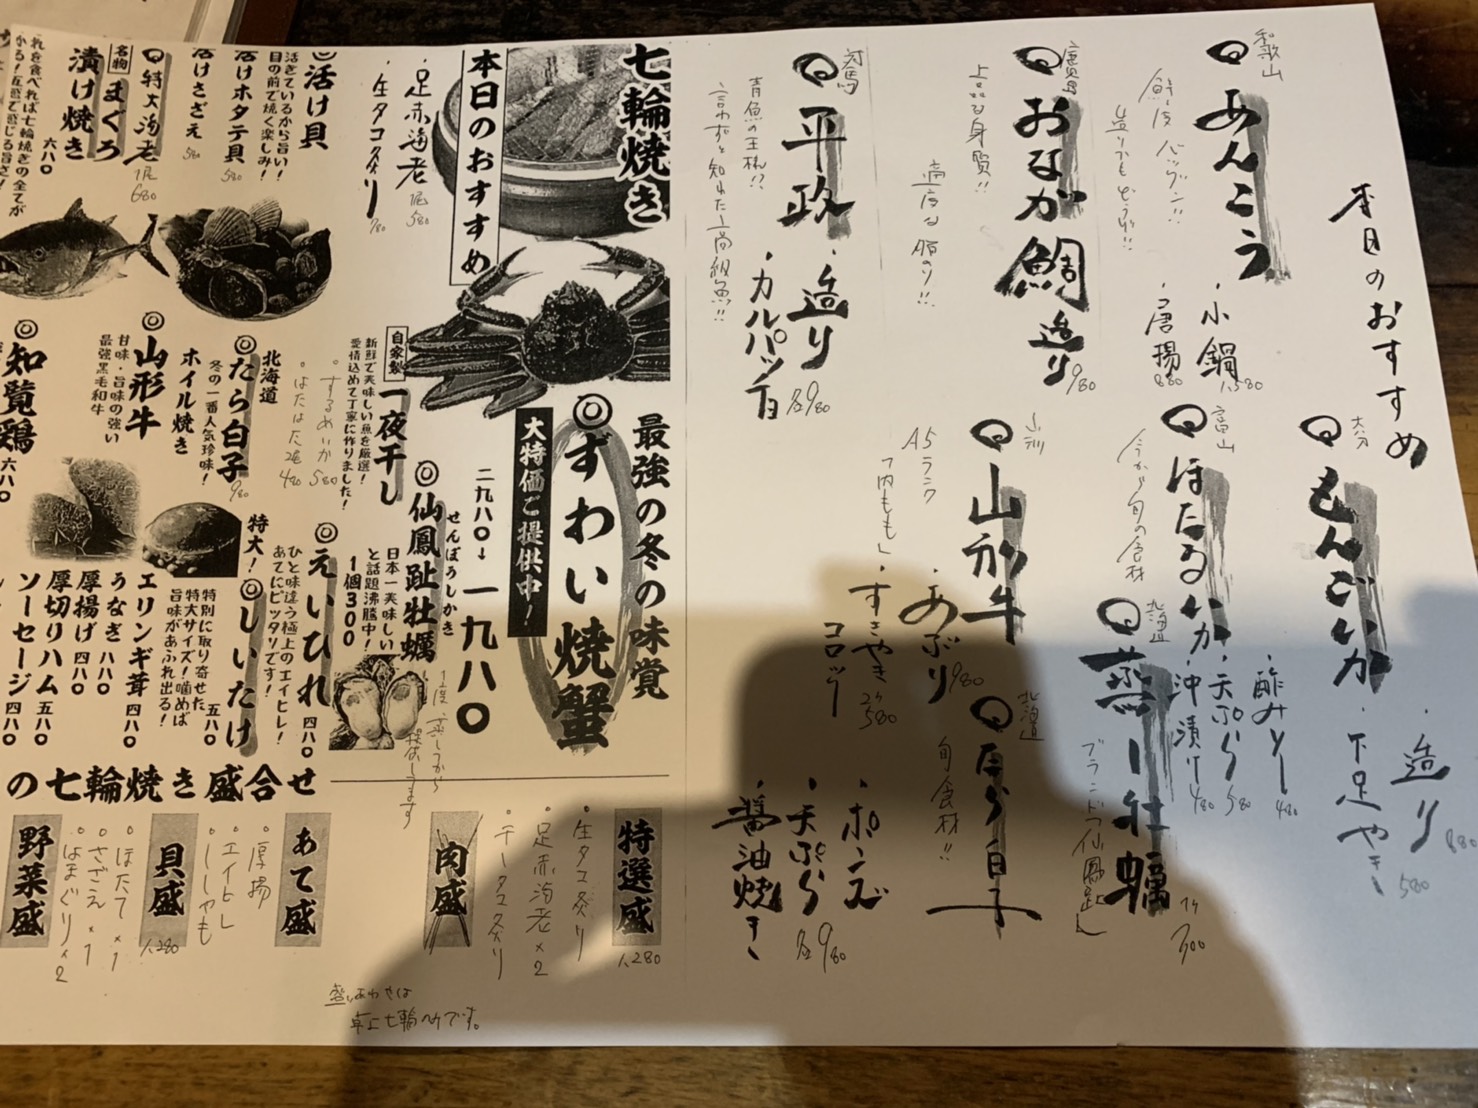 本日のおすすめ
大分
もんごいか
・造り 880
・下足やき 580
和歌山
あんこう
・小鍋 1,580
・唐揚 880
富山
ほたるいか
今が旬の食材
・酢みそ 480
・天ぷら 580
・沖漬け 480
北海道
蒸し牡蠣
1ケ 300
ブランド「仙鳳趾」
鹿児島
おなが鯛 造り 980
上品な身質!!
適度な脂のり!!
山形牛
A5ランク
「内もも」
・あぶり 980
・すきやきコロッケ 2ケ 580
北海道
たら白子
旬食材!!
・ポンズ
・天ぷら
・醤油焼き
各980
対馬
平政
・造り
・カルパッチョ
各980
青魚の王様!!
言わずと知れた高級魚!!
七輪焼き
本日のおすすめ
・足赤海老 1尾 580
・生タコ炙り 780
最強の冬の味覚
◎ずわい焼蟹
大特価ご提供中!
二九八〇→一九八〇
◎活け貝
活きているから旨い!
目の前で焼く楽しみ!
活けホタテ貝 580
活けさざえ 580
◎特大海老 1尾 680
名物
まぐろ
漬け焼き
六八〇
これを食べれば七輪焼きの全てが
自家製
一夜干し
新鮮で美味しい魚を厳選!
愛情込めて丁寧に作りました!
・するめいか 580
・はたはた 2尾 480
せんぽうしかき
◎仙鳳趾牡蠣
日本一美味しい
と話題沸騰中!
1個300
北海道
◎たら白子
冬の一番人気珍味!
ホイル焼き
980
◎山形牛
甘味・旨味の強い
最強黒毛和牛
◎知覧鶏
六八〇
◎えいひれ 四八〇
ひと味違う極上のエイヒレ!
あてにピッタリです!
特大!
◎しいたけ
特別に取り寄せた
特大サイズ!噛めば
旨味があふれ出る!
五八〇
エリンギ茸 四八〇
うなぎ 八八〇
厚揚げ 四八〇
厚切りハム 五八〇
ソーセージ 四八〇
の七輪焼き盛合せ
特選盛 1,280
・生タコ炙り
・足赤海老×2
肉盛
あて盛
・厚揚
・エイヒレ
・ししゃも
貝盛 1,280
・ほたて×1
・さざえ×1
・はまぐり×2
野菜盛
盛りあわせは
卓上七輪へのです。